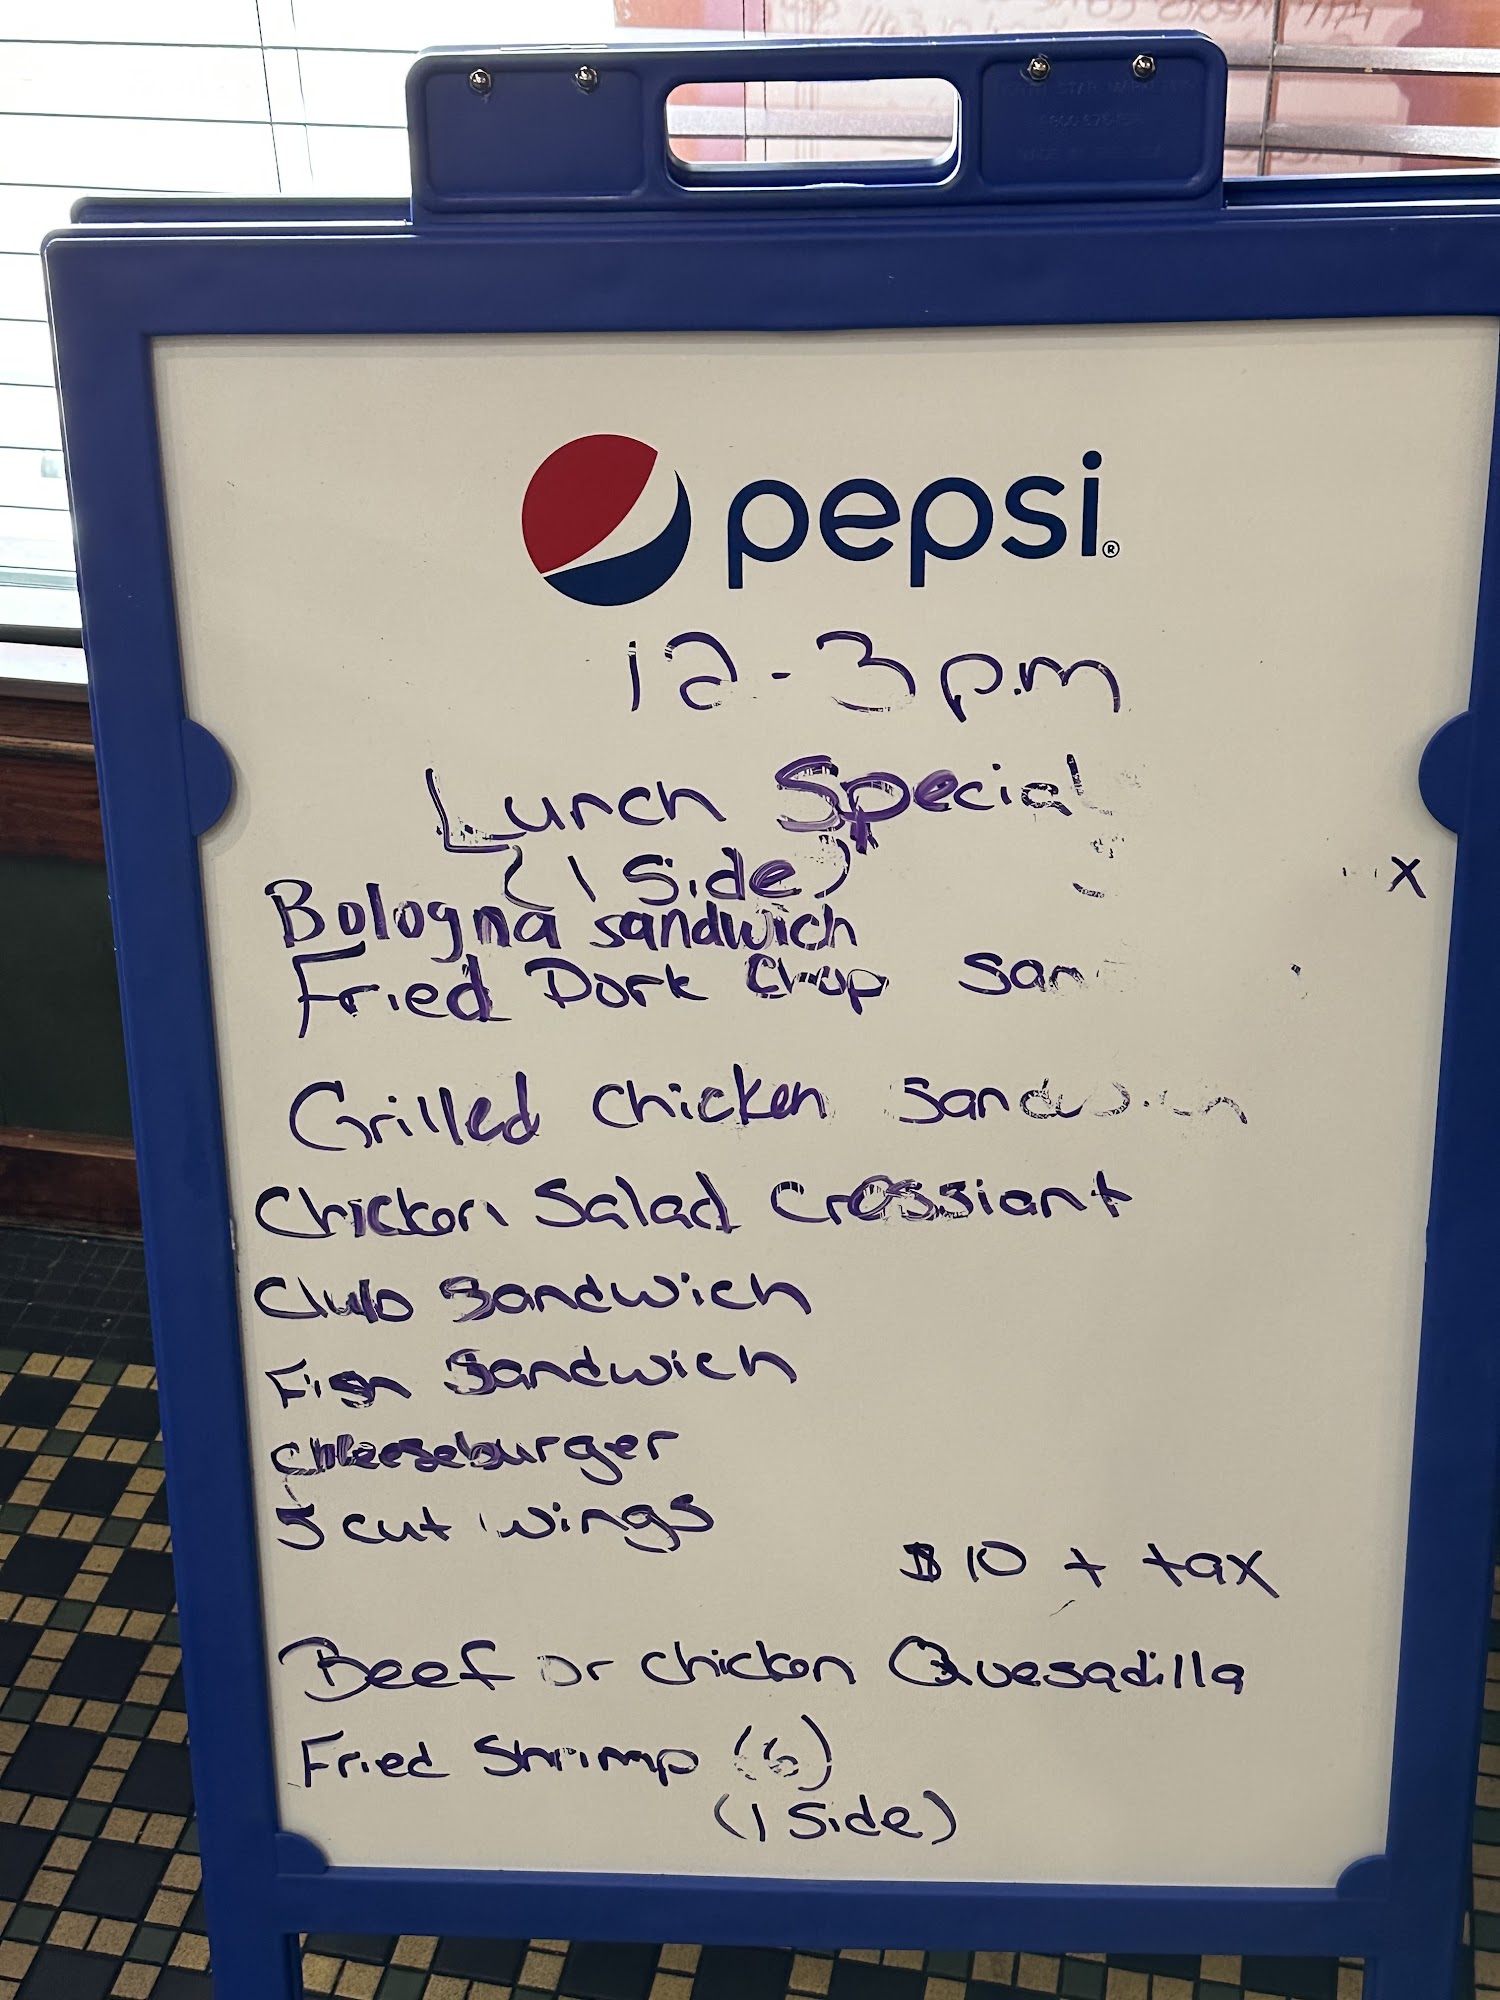 pepsi®
12-3 p.m
Lunch Special
(1 Side)
Bologna sandwich
Fried Pork Chop San
Grilled Chicken Sandwich
Chicken Salad Crossiant
Club Sandwich
Fish Sandwich
Cheeseburger
5 cut wings
$10 + tax
Beef or Chicken Quesadilla
Fried Shrimp (6)
(1 Side)